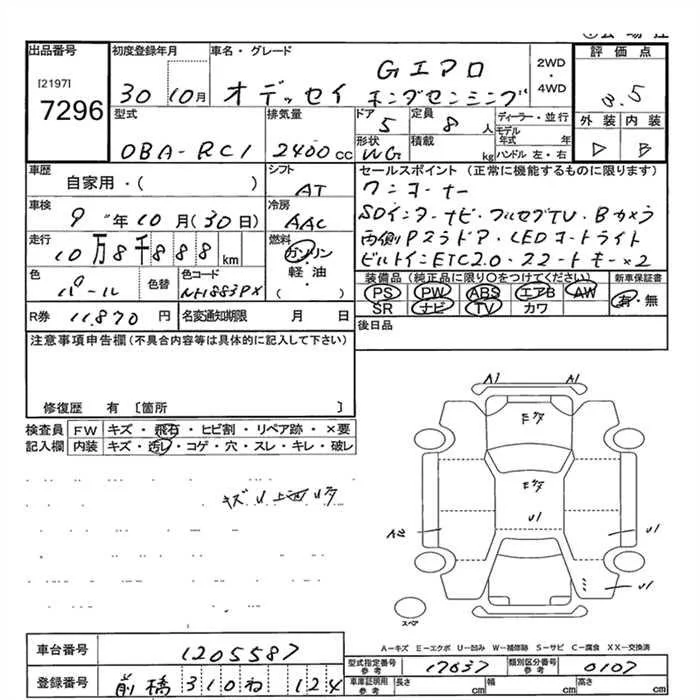 出品番号
[2197]
7296
初度登録年月
30 10月
車名・グレード
Gエアロ
オデッセイ ホンダセンシング
2WD
・
4WD
評価点
3.5
外装 内装
D B
型式
DBA-RC1
排気量
2400cc
ドア
5
定員
8人
形状
WG
積載
kg
ディーラー・並行
モデル年式 年
ハンドル 左・右
車歴
自家用・( )
シフト
AT
車検
9年10月(30日)
冷房
AAC
走行
10万8千888km
燃料
ガソリン
・
軽・油
( )
色
パール
色替
色コード
NH883PX
R券 11,870円
名変通知期限 月 日
セールスポイント (正常に機能するものに限ります)
ワンオーナー
SDインターナビ・フルセグTV・Bカメラ
両側Pスラドア・LEDオートライト
ビルトインETC2.0・2ヒートモー×2
装備品(純正品に限り○をつけてください)
PS PW ABS エアB AW
SR ナビ TV カワ
新車保証書
有・無
後日品
注意事項申告欄(不具合内容等は具体的に記入して下さい)
修復歴 有 [箇所 ]
検査員 FW キズ・飛石・ヒビ割・リペア跡・×要
記入欄 内装 キズ・汚レ・コゲ・穴・スレ・キレ・破レ
キズU
A1 A1
モケ
モケ
U1
A2
U1
U1
スペア
A―キズ E―エクボ U―凹み W―補修跡 S―サビ C―腐食 XX―交換済
車台番号 1205587
登録番号 前橋 310 ね 124
型式指定番号
参考
17637
類別区分番号
参考
0107
車庫証明用
参考
長さ cm 幅 cm 高さ cm